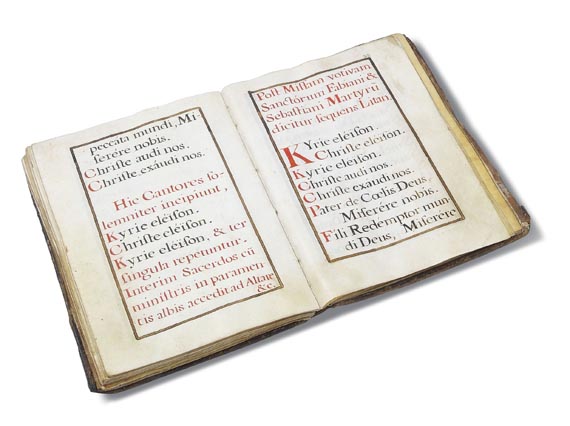 peccata mundi, Mi-
serére nobis.
Christe audi nos.
Christe exáudi nos.
Hic Cantores so-
lemniter incipiunt,
Kyrie eléison.
Christe eléison.
Kyrie eléison, & ter
singula repetuntur.
Interim Sacerdos cū
ministris in paramen
tis albis accedit ad Altare
&c.
Post Missam votivam
Sanctórum Fabiani &
Sebastiani Martyrū
dicitur sequens Litan.
Kyrie eléison.
Christe eléison.
Kyrie eléison.
Christe audi nos.
Christe exaudi nos.
Pater de Cœlis Deus,
Miserére nobis.
Fili Redemptor mun
di Deus, Miserére